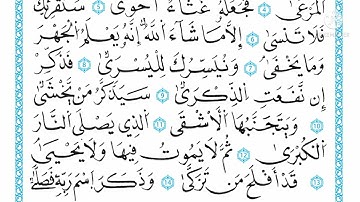 الْمَرْعَىٰ ٤ فَجَعَلَهُ غُثَاءً أَحْوَىٰ ٥ سَنُقْرِئُكَ
فَلَا تَنسَىٰ ٦ إِلَّا مَا شَاءَ اللَّهُ إِنَّهُ يَعْلَمُ الْجَهْرَ
وَمَا يَخْفَىٰ ٧ وَنُيَسِّرُكَ لِلْيُسْرَىٰ ٨ فَذَكِّرْ
إِن نَّفَعَتِ الذِّكْرَىٰ ٩ سَيَذَّكَّرُ مَن يَخْشَىٰ
١٠ وَيَتَجَنَّبُهَا الْأَشْقَى ١١ الَّذِي يَصْلَى النَّارَ
الْكُبْرَىٰ ١٢ ثُمَّ لَا يَمُوتُ فِيهَا وَلَا يَحْيَىٰ
١٣ قَدْ أَفْلَحَ مَن تَزَكَّىٰ ١٤ وَذَكَرَ اسْمَ رَبِّهِ فَصَلَّىٰ